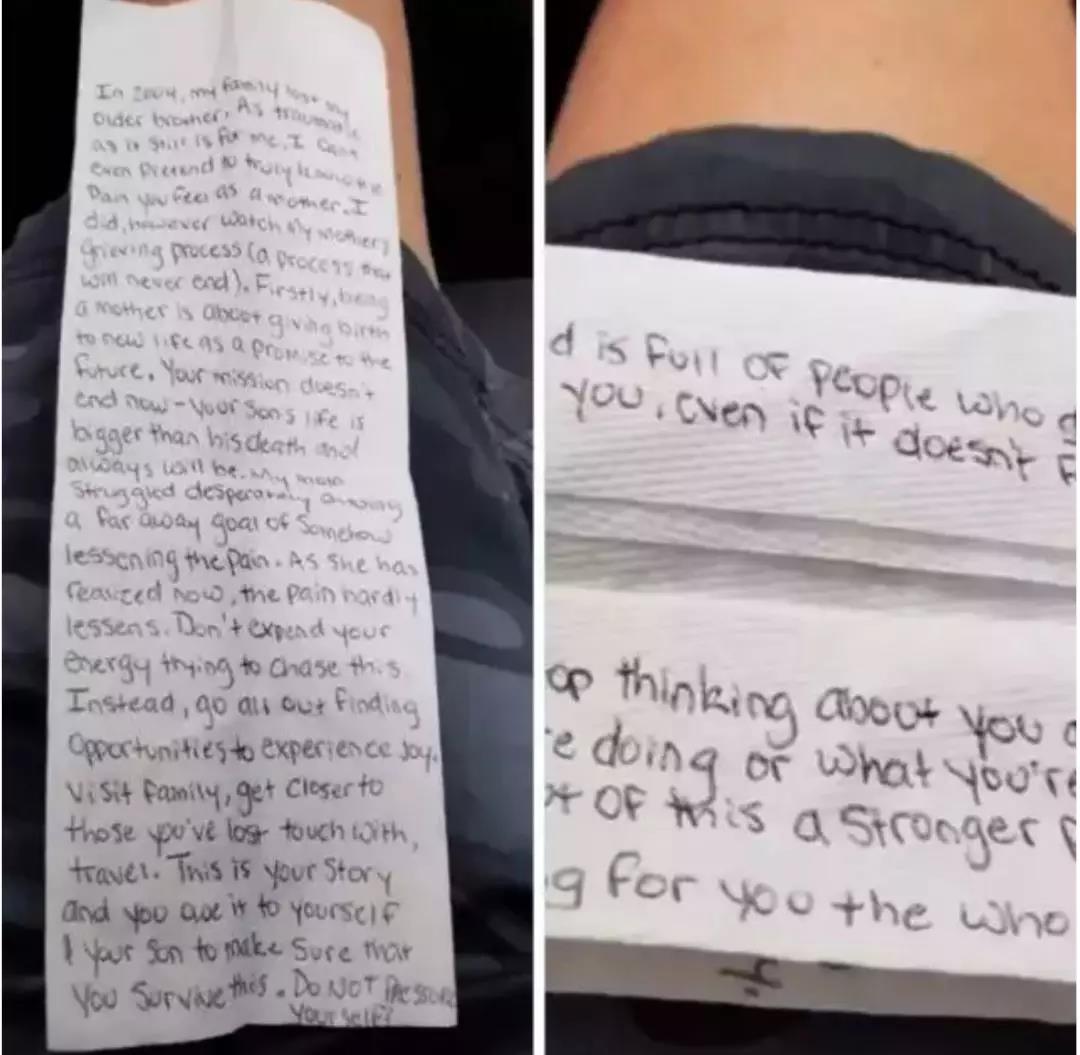 In 2004, my family lost my
older brother. As traumatic
as it still is for me, I can't
even pretend to truly know the
Pain you feel as a mother. I
did, however watch my mothers
grieving process (a process that
will never end). Firstly, being
a mother is about giving birth
to new life as a promise to the
future. Your mission doesn't
end now - your sons life is
bigger than his death and
always will be. My mom
Struggled desperately
a far away goal of Somehow
lessening the pain. As she has
realized now, the pain hardly
lessens. Don't expend your
energy trying to chase this.
Instead, go all out finding
opportunities to experience Joy.
Visit family, get closer to
those you've lost touch with,
travel. This is your Story
and you owe it to yourself
& your son to make Sure that
you Survive this. DO NOT PRESSURE
yourself
d is full of people who
you, even if it doesn't
op thinking about you
e doing or what you're
OF this a Stronger
g for you the who